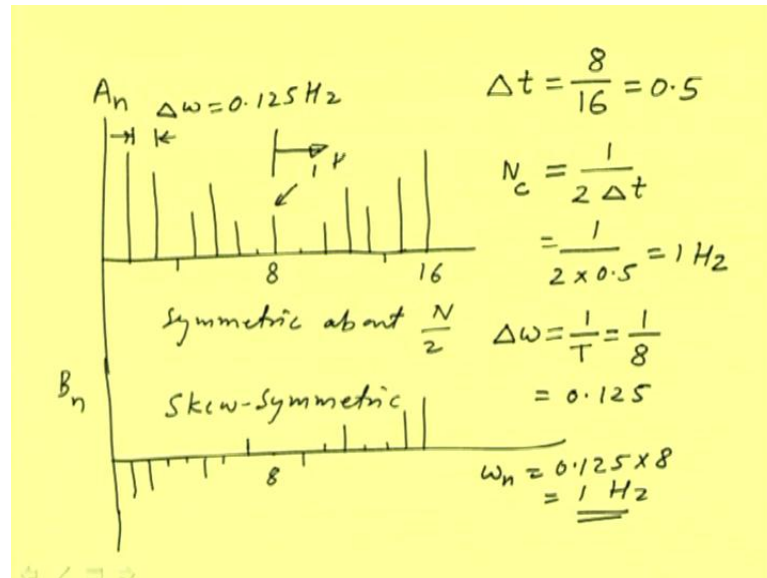 An Δω = 0.125 Hz
8 16
Symmetric about N/2
Bn
Skew-Symmetric
8
Δt = 8/16 = 0.5
Nc = 1/(2 Δt)
= 1/(2 x 0.5) = 1 Hz
Δω = 1/T = 1/8
= 0.125
ωn = 0.125 x 8
= 1 Hz